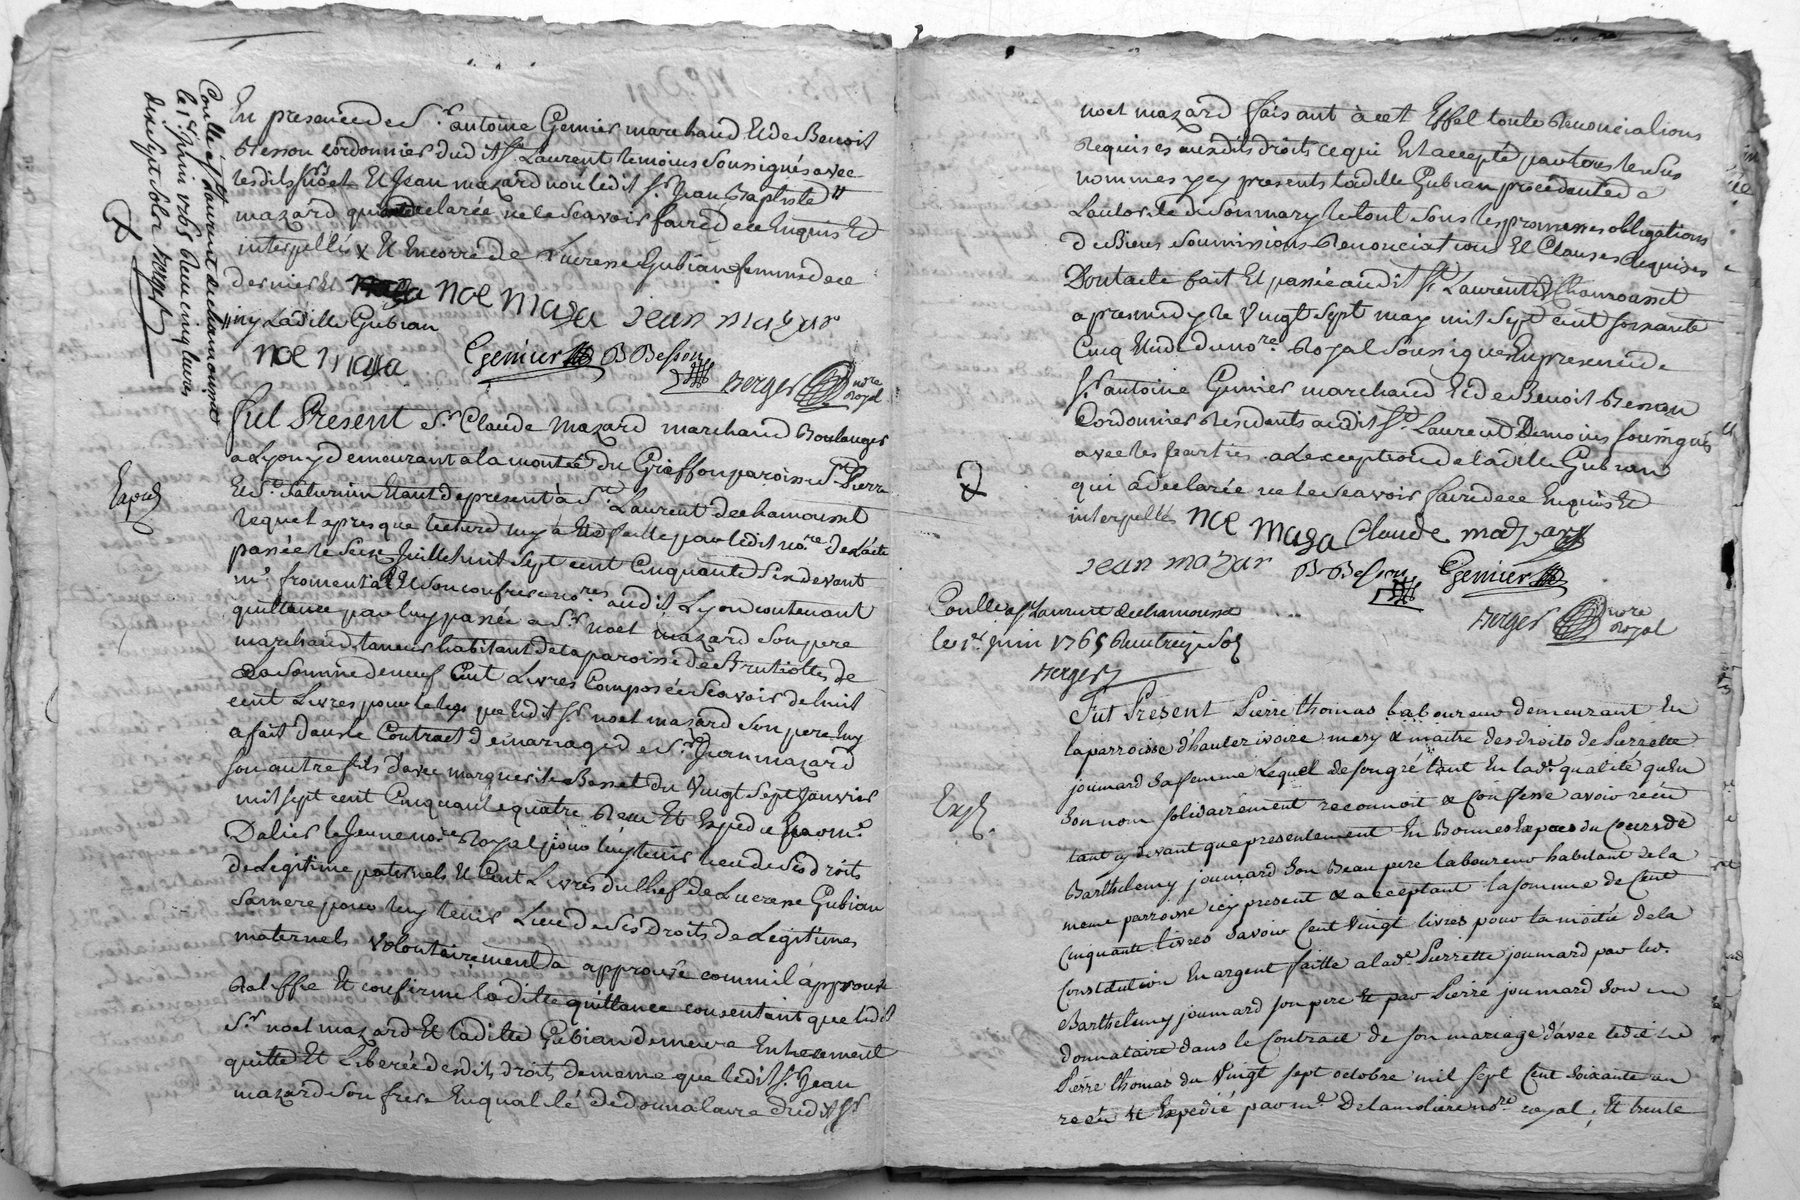 Conllé a St Laurent de chamousset
le 1er Juin 1765 Reçu cinq livres
dix sept sols Berger
En presence de Sr. antoine Genier marchand Et de Benoit
Besson cordonnier dudit St Laurent temoins soussignés avec
lesdits Noel Et Jean mazard non ledit Sr. Jean Baptiste
mazard qui a declaré ne le scavoir faire de ce Enquis Et
interpellés x Et Encorre de Lucresse Gubian femme de ce
dernier
ny Ladille Gubian
noe Maza Jean mazar
noe Maza Genier B Besson
Berger nore Royal
Fut Present Sr. Claude Mazard marchand Boulanger
a Lyon y demeurant a la montée du Griffon paroisse St Pierre
Et St. Saturnin Etant de present à St. Laurent de chamousset
lequel apres que lecture luy a Eté faitte par ledit nore de l'acte
passée le seize Juillet mil sept cent Cinquante Six devant
me. fromental Et son confrere nores audit Lyon contenant
quittance par luy passée a Sr noel mazard son pere
marchand taneur habitant de la paroisse de Brutiolles de
la somme de neuf Cent Livres Composée Scavoir de huit
cent Livres pour le legs que ledit Sr. noel mazard son pere luy
a fait dans le Contract de mariage de Sr. Jean mazard
son autre fils d'avec marguerite Besset du Vingt Sept Janvier
mil sept cent Cinquante quatre Receu Et Expedié par me.
Dalier le Jeune nore. Royal pour luy tenir lieu de Ses droits
de Legitime paternels Et Cent Livres du Chef de Lucresse Gubian
sa mere pour luy tenir Lieu de Ses Droits de Legitimes
maternels volontairement a approuvé comm'il approuve
Ratiffie Et confirme laditte quittance consentant que ledit
Sr. noel mazard Et laditte Gubian demeure Entierement
quitte Et Liberée desdits droits de meme que ledit Sr. Jean
mazard son frere En qualité de donnataire dudit Sr
noel mazard faisant à cet Effet toute Renonciations
Requises auxdits droits ce qui Est accepté par tous les sus
nommes icy presents ladille Gubian procedante de
L'autorité de son mary le tout sous les promesses obligations
de Biens soumissions Renonciations Et Clauses Requises
Dont acte fait Et passée audit St. Laurent de Chamousset
apres midy le Vingt Sept may mil sept cent soixante
Cinq Et du nore. Royal soussigné En presence de
Sr. antoine Genier marchand Et de Benoit Besson
Cordonnier Residents audit St. Laurent temoins soussignés
avec les parties a L'exception de ladille Gubian
qui a declarée ne le scavoir faire de ce Enquis Et
interpellés noe Maza Claude mazard
Jean Mazar B Besson Genier
Berger nore Royal
Conllé a St Laurent de chamousset
le 1er Juin 1765 Reçu treize sols
Berger
Fut Present Pierre thomas laboureur demeurant En
la parroisse d'hauterivoire mary & maitre des droits de Pierrette
joumard sa femme Lequel de son gré tant En lade. qualité qu'en
son nom solidairement reconnoit & confesse avoir receu
tant cy devant que presentement En Bonnes Especes du Cours de
Barthelemy joumard son Beau pere laboureur habitant de la
meme parroisse icy present & acceptant la somme de Cent
cinquante livres savoir Cent Vingt livres pour la moitié de la
Constitution En argent faitte a lade. Pierrette joumard par led.
Barthelemy joumard son pere Et par Pierre joumard son
donnataire dans le Contract de son mariage d'avec ledit
Pierre thomas du Vingt sept octobre mil sept Cent soixante un
receu & Expedié par me. Delamoliere nore. royal, Et trente